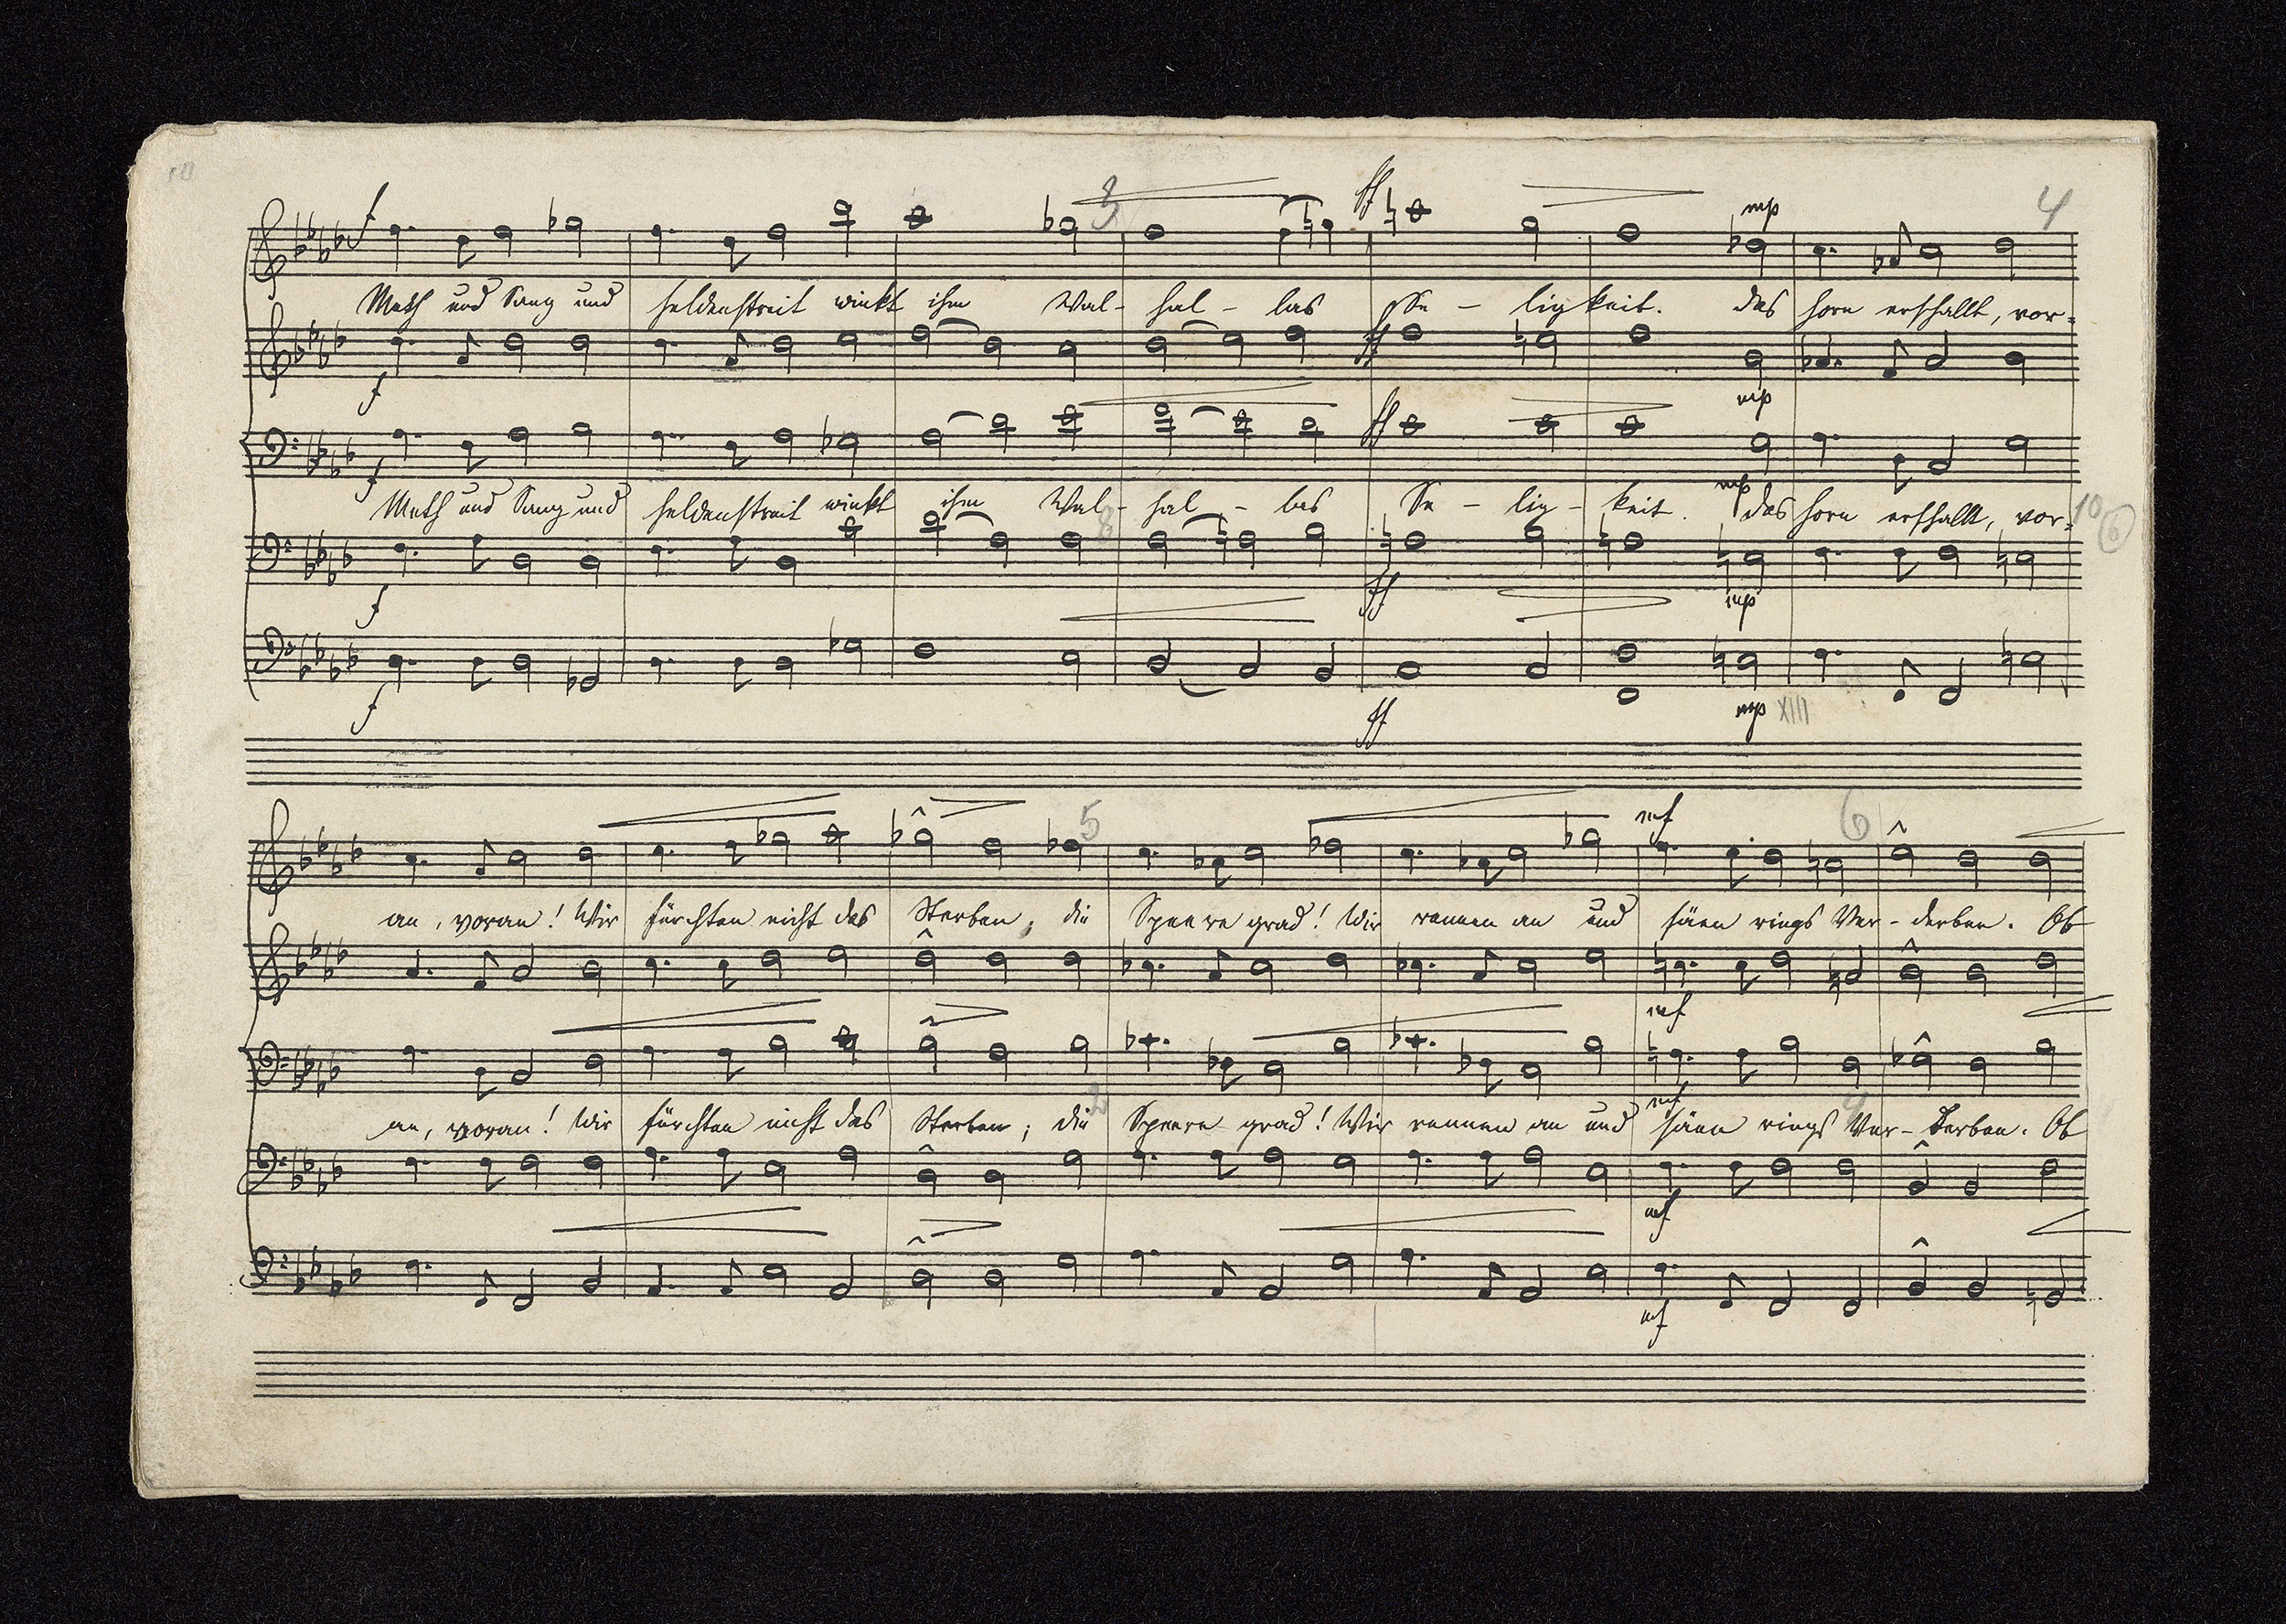 4
f 3 ff mp
Meth und Sang und Heldenstreit winkt ihm Wal- hal - las Se - ligkeit. Das Horn erschallt, vor-
f ff mp
f ff mp
Meth und Sang und Heldenstreit winkt ihm Wal- hal - las Se - lig - keit. Das Horn erschallt, vor-
10 6
8
f ff mp
f ff mp XIII
5 mf 6
an, voran! Wir fürchten nicht das Sterben, die Speere grad! Wir rennen an und säen rings Ver- derben. Ob
mf
2 mf
an, voran! Wir fürchten nicht das Sterben; die Speere grad! Wir rennen an und säen rings Ver- derben. Ob
mf
mf